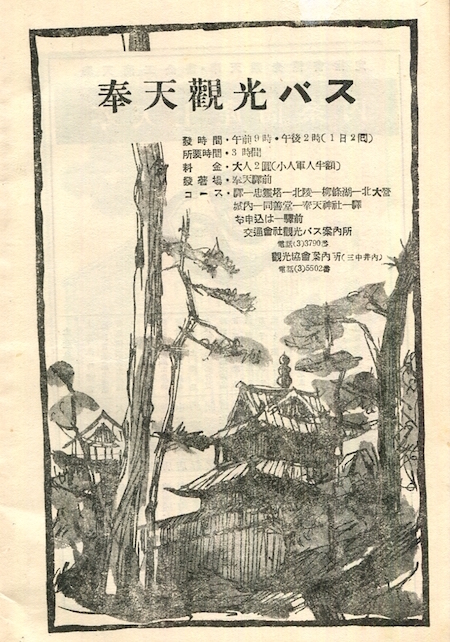 奉天觀光バス
發時間・午前9時・午後2時(1日2囘)
所要時間・3時間
料金・大人2圓(小人軍人半額)
發著場・奉天驛前
コース・驛—忠靈塔—北陵—柳條湖—北大營
城內—同善堂—奉天神社—驛
お申込は—驛前
交通會社觀光バス案內所
電話(3)3790番
觀光協會案內所(三中井內)
電話(3)5502番